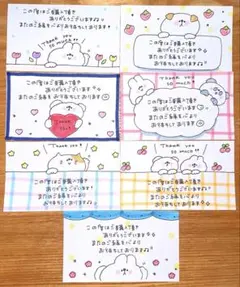 この度はご購入頂き
ありがとうございます♪
またのご縁を心より
お待ちしております
Thank you
so much
この度はご購入頂き
ありがとうございます
またのご縁を心より
お待ちしております
この度はご購入頂き
ありがとうございます
またのご縁を心より
お待ちしております
Thank you
so much
この度はご購入頂き
ありがとうございます
またのご縁を心より
お待ちしております
Thank you
この度はご購入頂き
ありがとうございます
またのご縁を心より
お待ちしております
Thank you
so much
この度はご購入頂き
ありがとうございます
またのご縁を心より
お待ちしております
この度はご購入頂き
ありがとうございます
またのご縁を心より
お待ちしております